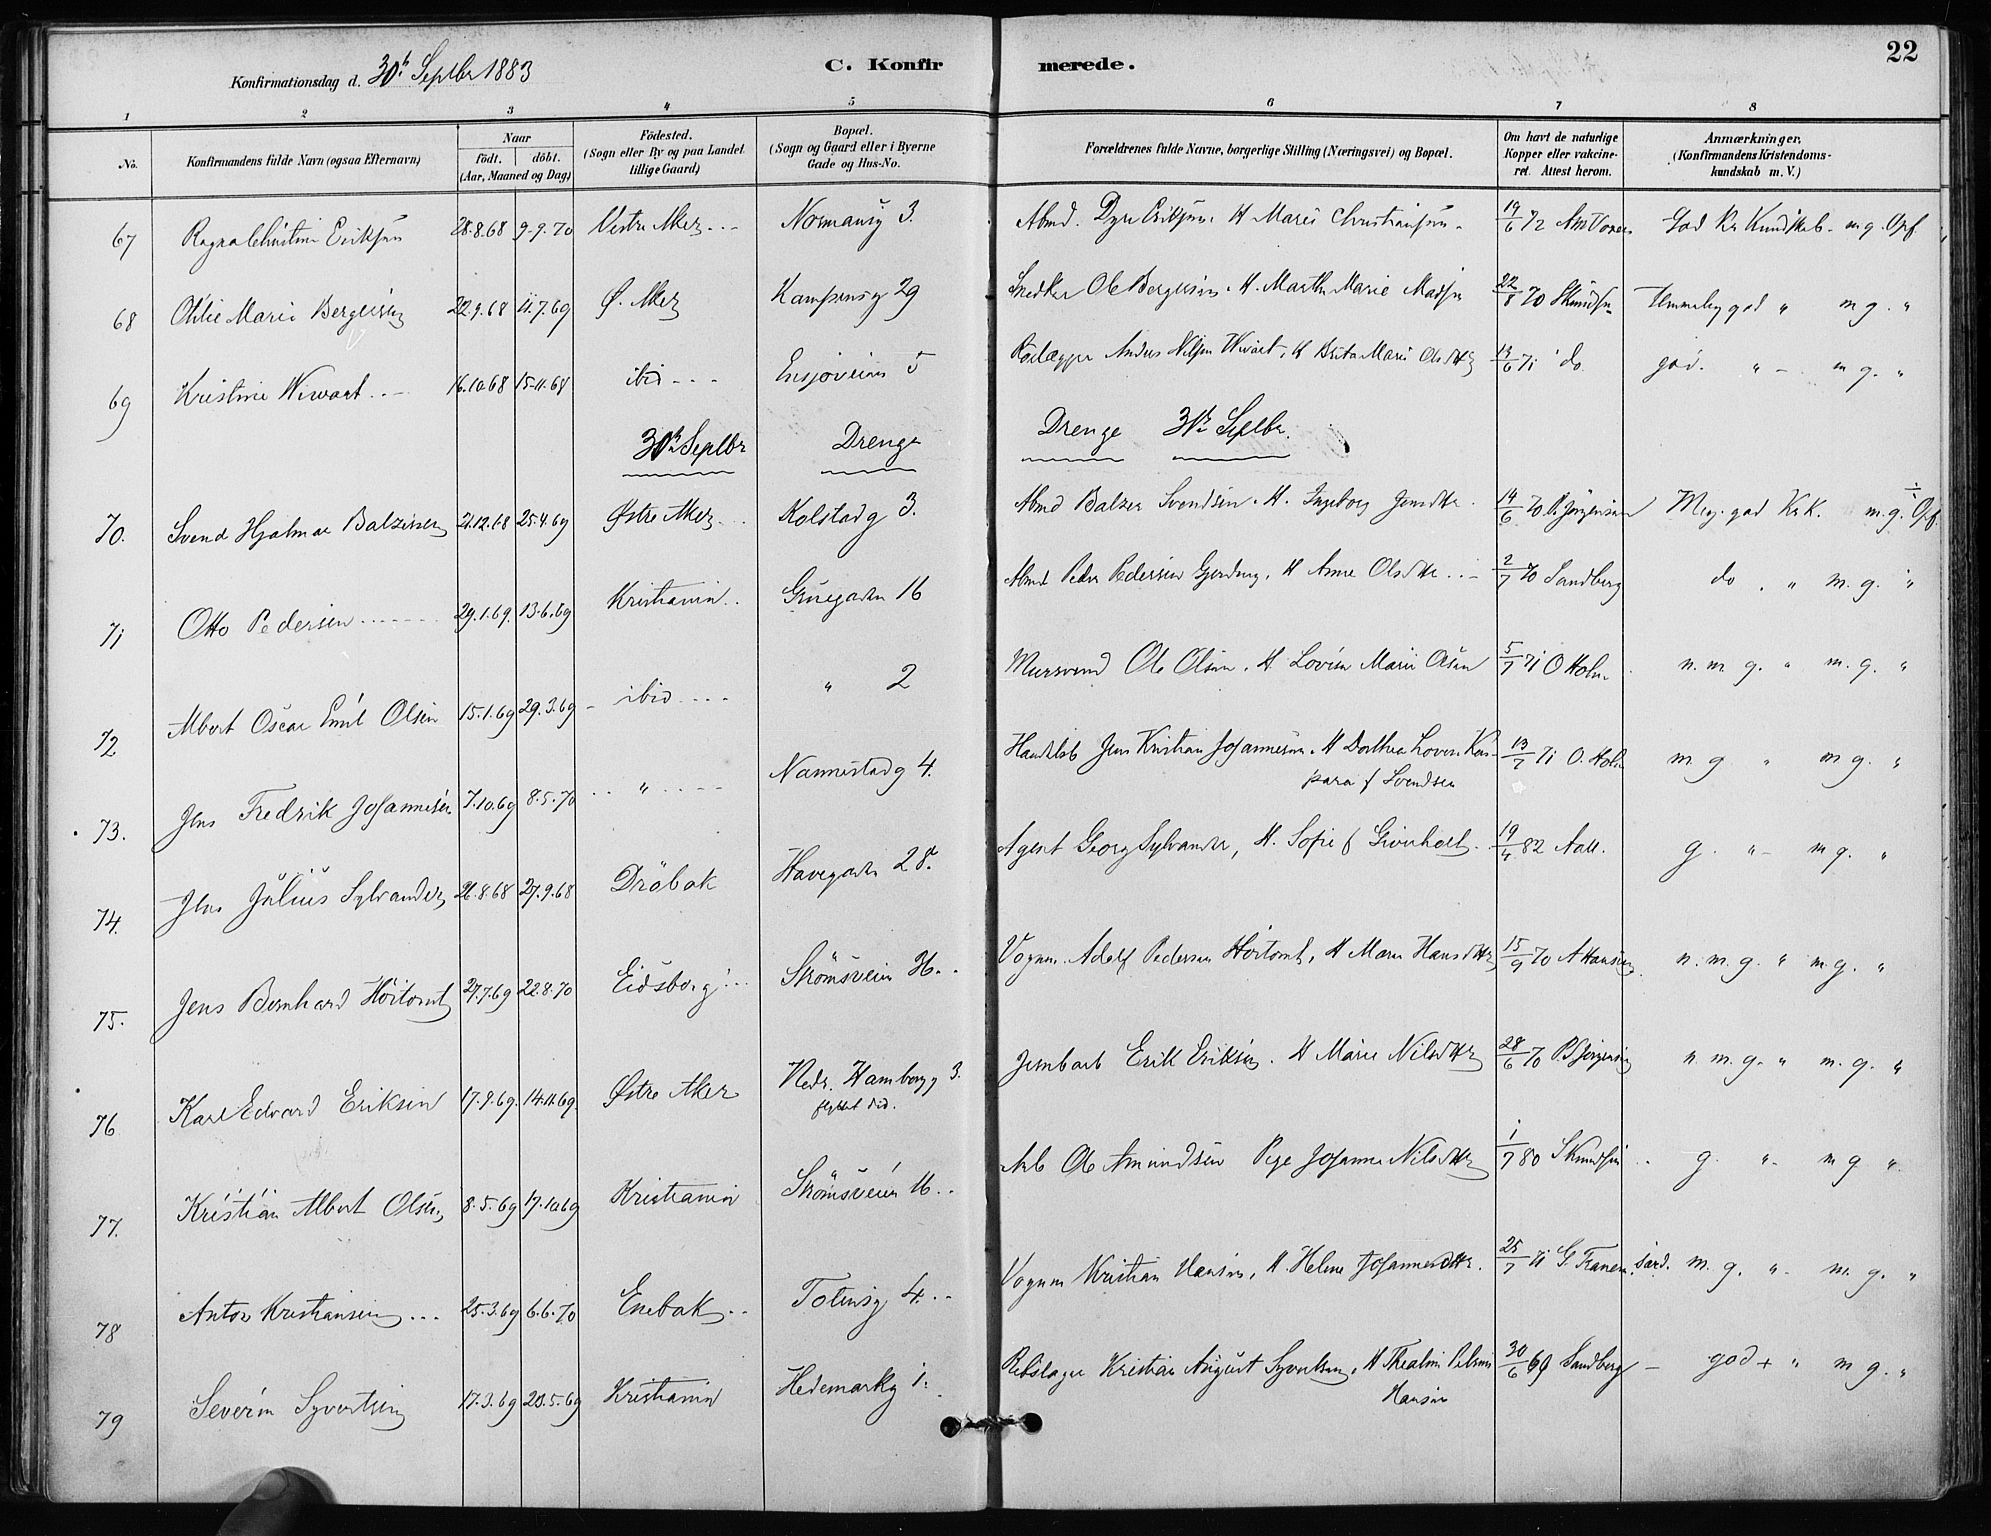 Konfirmationsdag d. 30te Septbr 1883
C. Konfirmerede.
22
1 2 3 4 5 6 7 8
No.
Konfirmandens fulde Navn (ogsaa Efternavn)
Naar
födt. döbt.
(Aar, Maaned og Dag)
Födested.
(Sogn eller By og paa Landet tillige Gaard)
Bopæl.
(Sogn og Gaard eller i Byerne Gade og Hus-No.
Forældrenes fulde Navne, borgerlige Stilling (Næringsvei) og Bopæl.
Om havt de naturlige Kopper eller vakcineret. Attest herom.
Anmærkninger,
(Konfirmandens Kristendomskundskab m. V.)
67 Ragna Christine Eriksen 28.8.68 9.9.70 Vestre Aker Normansg 3. Abmd. Eriksen, H Marie Christiansen 19/6 72 God Kr Kundskab m g. Opf.
68 Othlie Marie Bergersen 22.9.68 11.7.69 Ø. Aker Kampensg 29 Snedker Ole Bergersen, H. Marthe Marie Madsen 22/8 70 Temmelig god " m g. "
69 Kristine 16.10.68 15.11.68 ibid Ensjøveien 5 Anders Nilsen H Brita Marie Olsdtr 13/6 71 do. god. " m g. "
30te Septbr Drenge
Drenge 30te Septbr.
70. Svend Hjalmar Balzersen 21.12.68 25.4.69 Østre Aker Kolstadg 3. Abmd Balzer Svendsen H. Ingeborg Jensdtr. 14/6 70 P. Jørgensen Meg. god Kr K. m. g. Opf.
71 Otto Pedersen 29.1.69. 13.6.69 Kristiania Grüegaden 16 Abmd Peder Pedersen H Anne Olsdtr 2/7 70 Sandberg do " m. g. "
72 Albert Oscar Emil Olsen 15.1.69 29.3.69 ibid " 2 Mursvend Ole Olsen, H Lovise Marie Olsen 5/7 71 O Holm n. m g. " m. g. "
73. Jens Fredrik Johannesen 7.10.69 8.5.70 " Nannestadg 4. Jens Kristian Johannesen, H Dorthea Lovise Kaspara f Svendsen 13/7 71 O. Holm m. g " m g. "
74. Jens Julius Sylvander 26.8.68 27.9.68 Dröbak Havegaden 28. Agent Georg Sylvander, H. Sofie f 19/4 82 Aall. g. " m g. "
75. Jens Bernhard Hörtomt 27.7.69 22.8.70 Eidsberg Strömsveien 36. Vognm. Adolf Pedersen Hörtomt, H Maren Hansdtr 15/9 70 A Hansen n. m. g. " m. g. "
76 Karl Edvard Eriksen 17.9.69. 14.11.69. Østre Aker Nedr. Hamborgg 3.
flyttet did.
Jernbarb Erik Eriksen. H Marie Nilsdtr 28/6 70 P Jørgensen n m. g. " m. g. "
77. Kristian Albert Olsen 8.5.69 17.10.69 Kristiania Strömsveien 16. Arb Ole Amundsen Pige Johanne Nilsdtr 1/7 80 S Knudsen g. " m g "
78 Anton Kristiansen 25.3.69 6.6.70 Enebak Totensg 4. Vognm Kristian Hansen, H. Helene Johannesdtr. 25/7 71 m. g. " m. g. "
79 Severin Syvertsen 17.3.69 23.5.69 Kristiania Hedemarkg 1. Rebslager Kristian August Syvertsen, H Thealine Petrine Hansen 30/6 69 Sandberg god + " m g. "